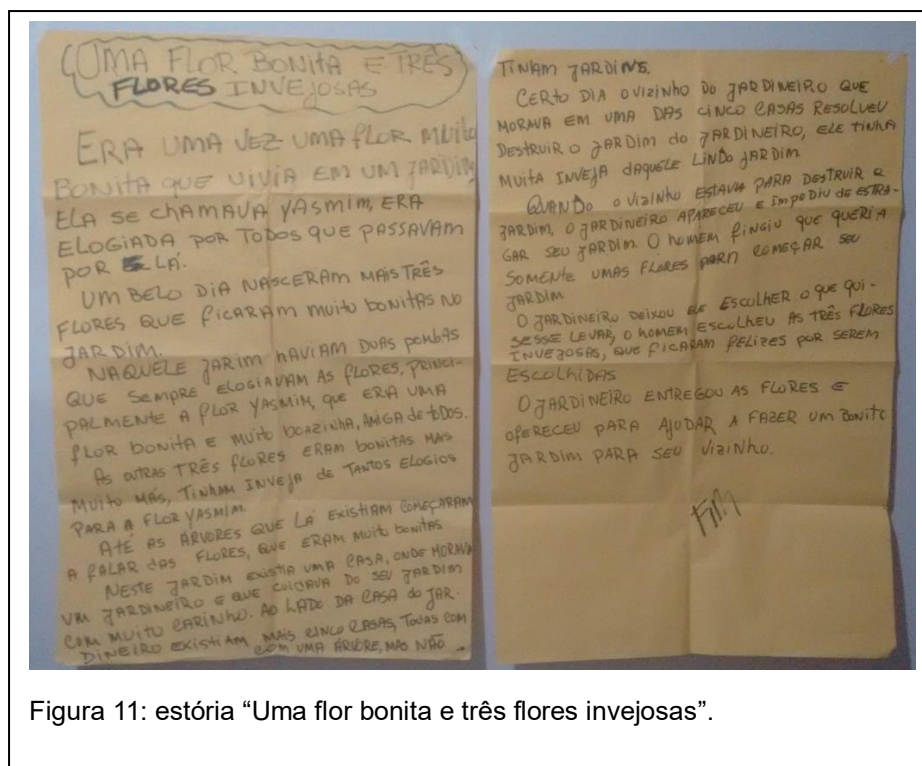 UMA FLOR BONITA E TRÊS
FLORES INVEJOSAS
ERA UMA VEZ UMA FLOR MUITO
BONITA QUE VIVIA EM UM JARDIM,
ELA SE CHAMAVA YASMIM, ERA
ELOGIADA POR TODOS QUE PASSAVAM
POR LÁ.
UM BELO DIA NASCERAM MAIS TRÊS
FLORES QUE FICARAM MUITO BONITAS NO
JARDIM.
NAQUELE JARIM HAVIAM DUAS POMBAS
QUE SEMPRE ELOGIAVAM AS FLORES, PRINCI-
PALMENTE A FLOR YASMIM, QUE ERA UMA
FLOR BONITA E MUITO BOAZINHA, AMIGA DE TODOS.
AS OUTRAS TRÊS FLORES ERAM BONITAS MAS
MUITO MÁS, TINHAM INVEJA DE TANTOS ELOGIOS
PARA A FLOR YASMIM
ATÉ AS ÁRVORES QUE LÁ EXISTIAM COMEÇARAM
A FALAR DAS FLORES, QUE ERAM MUITO BONITAS
NESTE JARDIM EXISTIA UMA CASA, ONDE MORAVA
UM JARDINEIRO E QUE CUIDAVA DO SEU JARDIM
COM MUITO CARINHO. AO LADO DA CASA DO JAR-
DINEIRO EXISTIAM MAIS CINCO CASAS, TODAS COM
COM UMA ÁRVORE, MAS NÃO
TINAM JARDINS.
CERTO DIA O VIZINHO DO JARDINEIRO QUE
MORAVA EM UMA DAS CINCO CASAS RESOLVEU
DESTRUIR O JARDIM DO JARDINEIRO, ELE TINHA
MUITA INVEJA DAQUELE LINDO JARDIM
QUANDO O VIZINHO ESTAVA PARA DESTRUIR O
JARDIM, O JARDINEIRO APARECEU E IMPEDIU DE ESTRA-
GAR SEU JARDIM. O HOMEM FINGIU QUE QUERIA
SOMENTE UMAS FLORES PARA COMEÇAR SEU
JARDIM
O JARDINEIRO DEIXOU ELE ESCOLHER O QUE QUI-
SESSE LEVAR, O HOMEM ESCOLHEU AS TRÊS FLORES
INVEJOSAS, QUE FICARAM FELIZES POR SEREM
ESCOLHIDAS
O JARDINEIRO ENTREGOU AS FLORES E
OFERECEU PARA AJUDAR A FAZER UM BONITO
JARDIM PARA SEU VIZINHO.
FIM
Figura 11: estória “Uma flor bonita e três flores invejosas”.